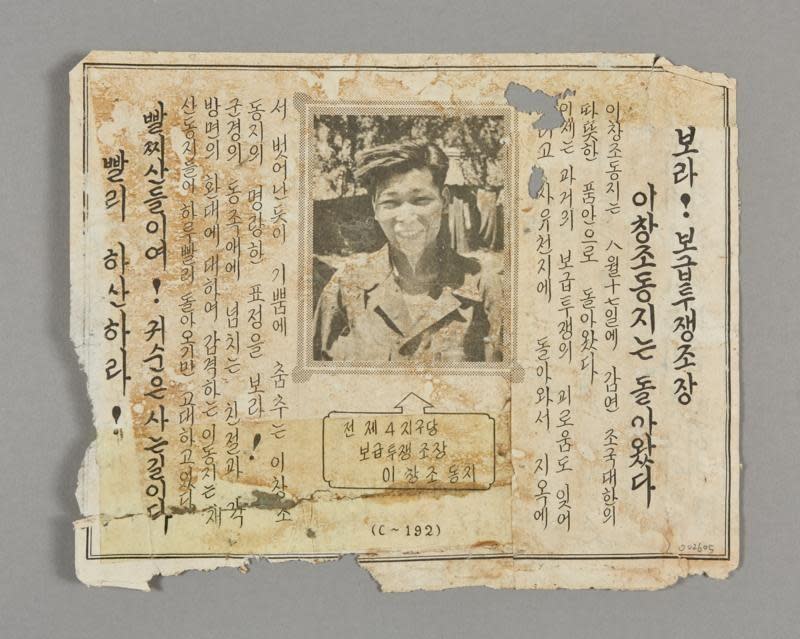 보라! 보급투쟁조장
이창조동지는 돌아왔다
이창조동지는 八월十七일에 감연 조국대한의
따뜻한 품안으로 돌아왔다
이제는 과거의 보급투쟁의 괴로움도 잊어
고 자유천지에 돌아와서 지옥에
서 벗어난듯이 기쁨에 춤추는 이창조
동지의 명랑한 표정을 보라!
군경의 동족애에 넘치는 친절과 각
방면의 환대에 대하여 감격하는 이동지는 재
산동지들이 하루빨리 돌아오기만 고대하고있다
빨찌산들이여! 귀순은 사는길이다
빨리 하산하라!
전 제4지구당
보급투쟁조장
이창조 동지
(C~192)
002605